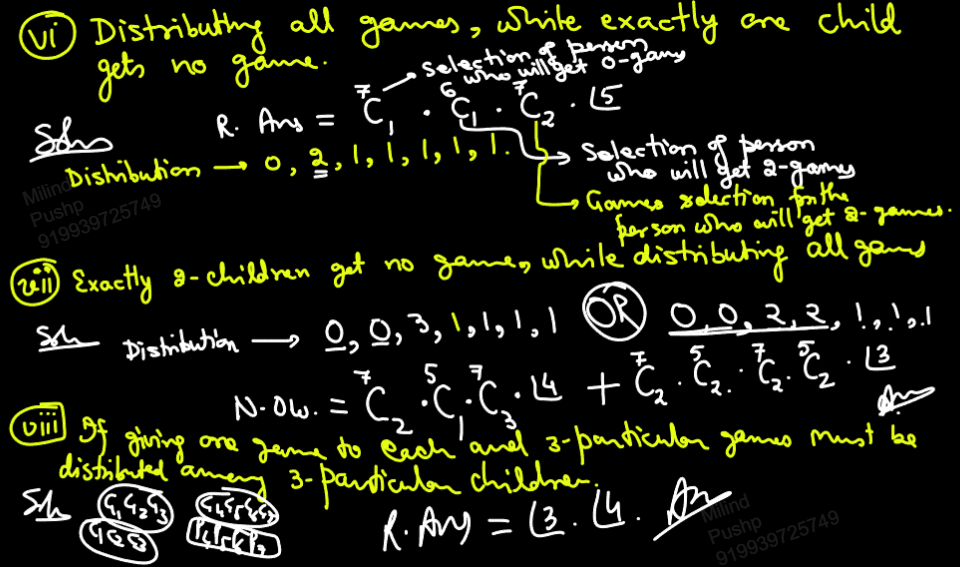 (vi) Distributing all games, while exactly one child
gets no game.
selection of person
who will get 0-game
Soln R. Ans = ⁷C₁ · ⁶C₁ · ⁷C₂ · ⌊5
Distribution → 0, 2, 1, 1, 1, 1, 1.
Selection of person
who will get 2-games
Games selection for the
person who will get 2-games.
Milind
Pushp
919939725749
(vii) Exactly 2-children get no game, while distributing all games
Soln Distribution → 0, 0, 3, 1, 1, 1, 1 OR 0, 0, 2, 2, 1, 1, 1
N.O.W. = ⁷C₂ · ⁵C₁ · ⁷C₃ · ⌊4 + ⁷C₂ · ⁵C₂ · ⁷C₂ · ⁵C₂ · ⌊3 Ans
(viii) If giving one game to each and 3-particular games must be
distributed among 3-Particular children.
Soln
R. Ans = ⌊3 · ⌊4. Ans
Milind
Pushp
919939725749